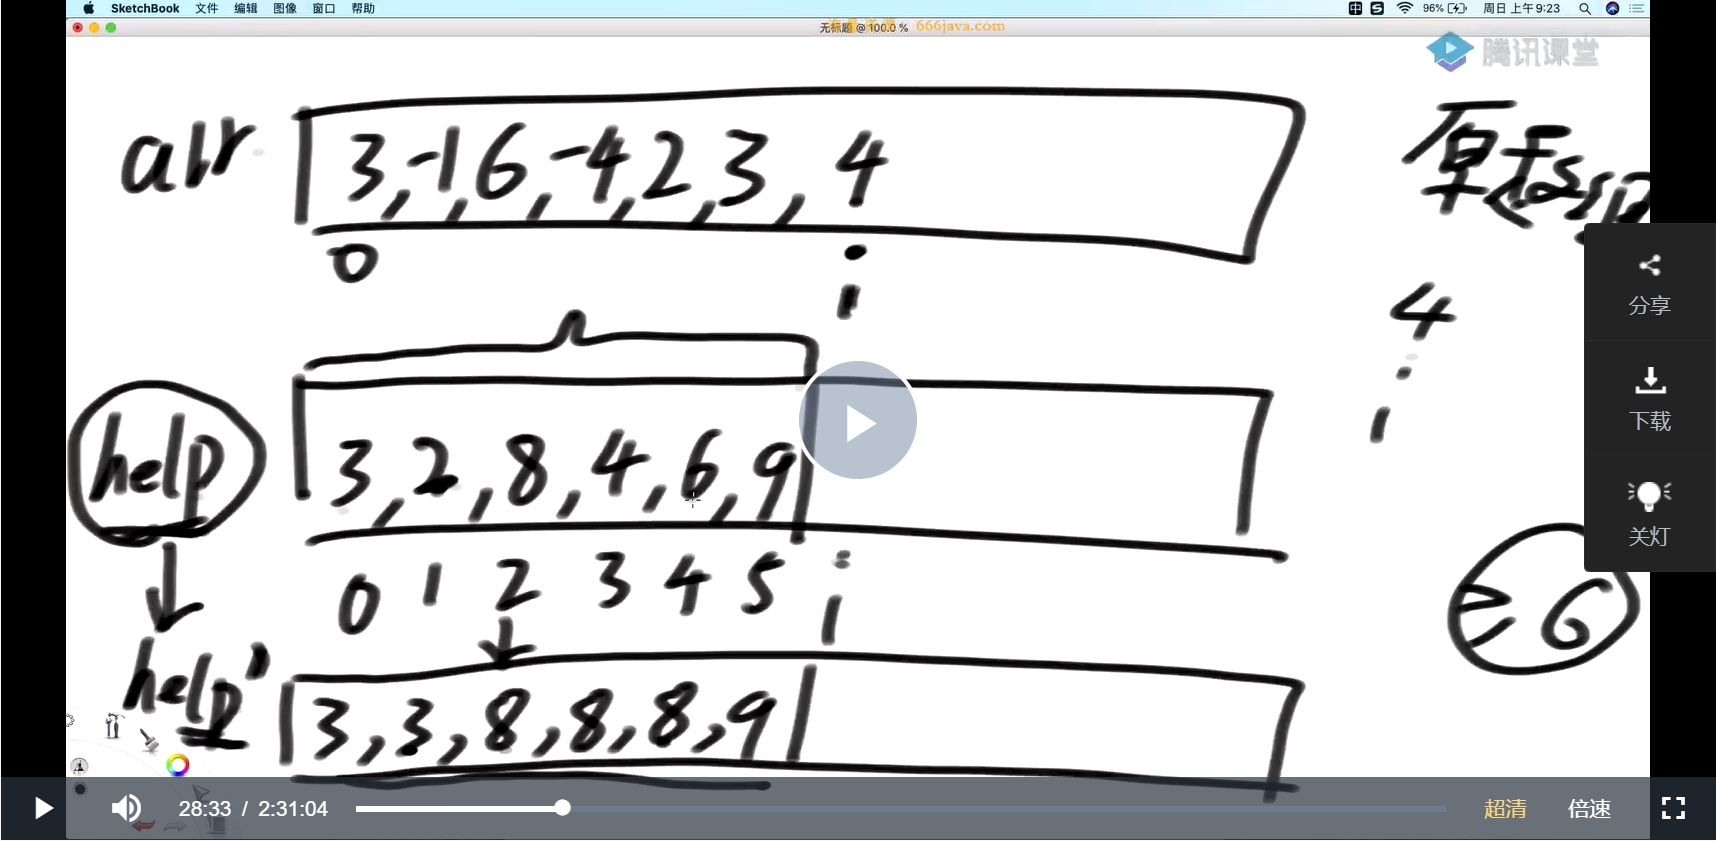 SketchBook 文件 编辑 图像 窗口 帮助 96% 周日 上午9:23
无标题 @ 100.0 % 666java.com
腾讯课堂
arr 3,-1,6,-4,2,3,4
0 i
4
i
分享
下载
关灯
help 3,2,8,4,6,9
0 1 2 3 4 5 i
≥ 6
help' 3,3,8,8,8,9
28:33 / 2:31:04 超清 倍速